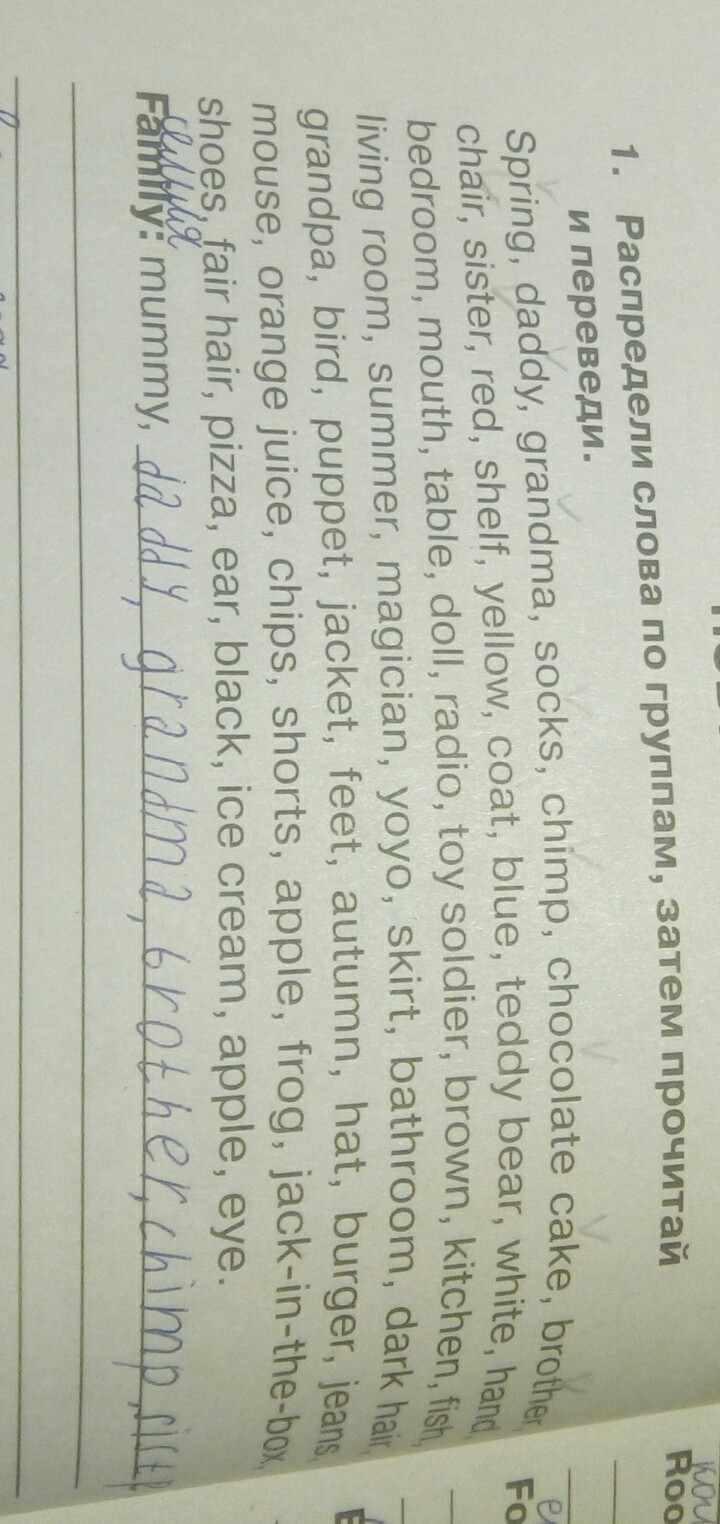 1. Распредели слова по группам, затем прочитай
и переведи.
Spring, daddy, grandma, socks, chimp, chocolate cake, brother,
chair, sister, red, shelf, yellow, coat, blue, teddy bear, white, hand,
bedroom, mouth, table, doll, radio, toy soldier, brown, kitchen, fish,
living room, summer, magician, yoyo, skirt, bathroom, dark hair,
grandpa, bird, puppet, jacket, feet, autumn, hat, burger, jeans,
mouse, orange juice, chips, shorts, apple, frog, jack-in-the-box,
shoes, fair hair, pizza, ear, black, ice cream, apple, eye.
семья
Family: mummy, daddy, grandma, brother, chimp,
Roo
Fo